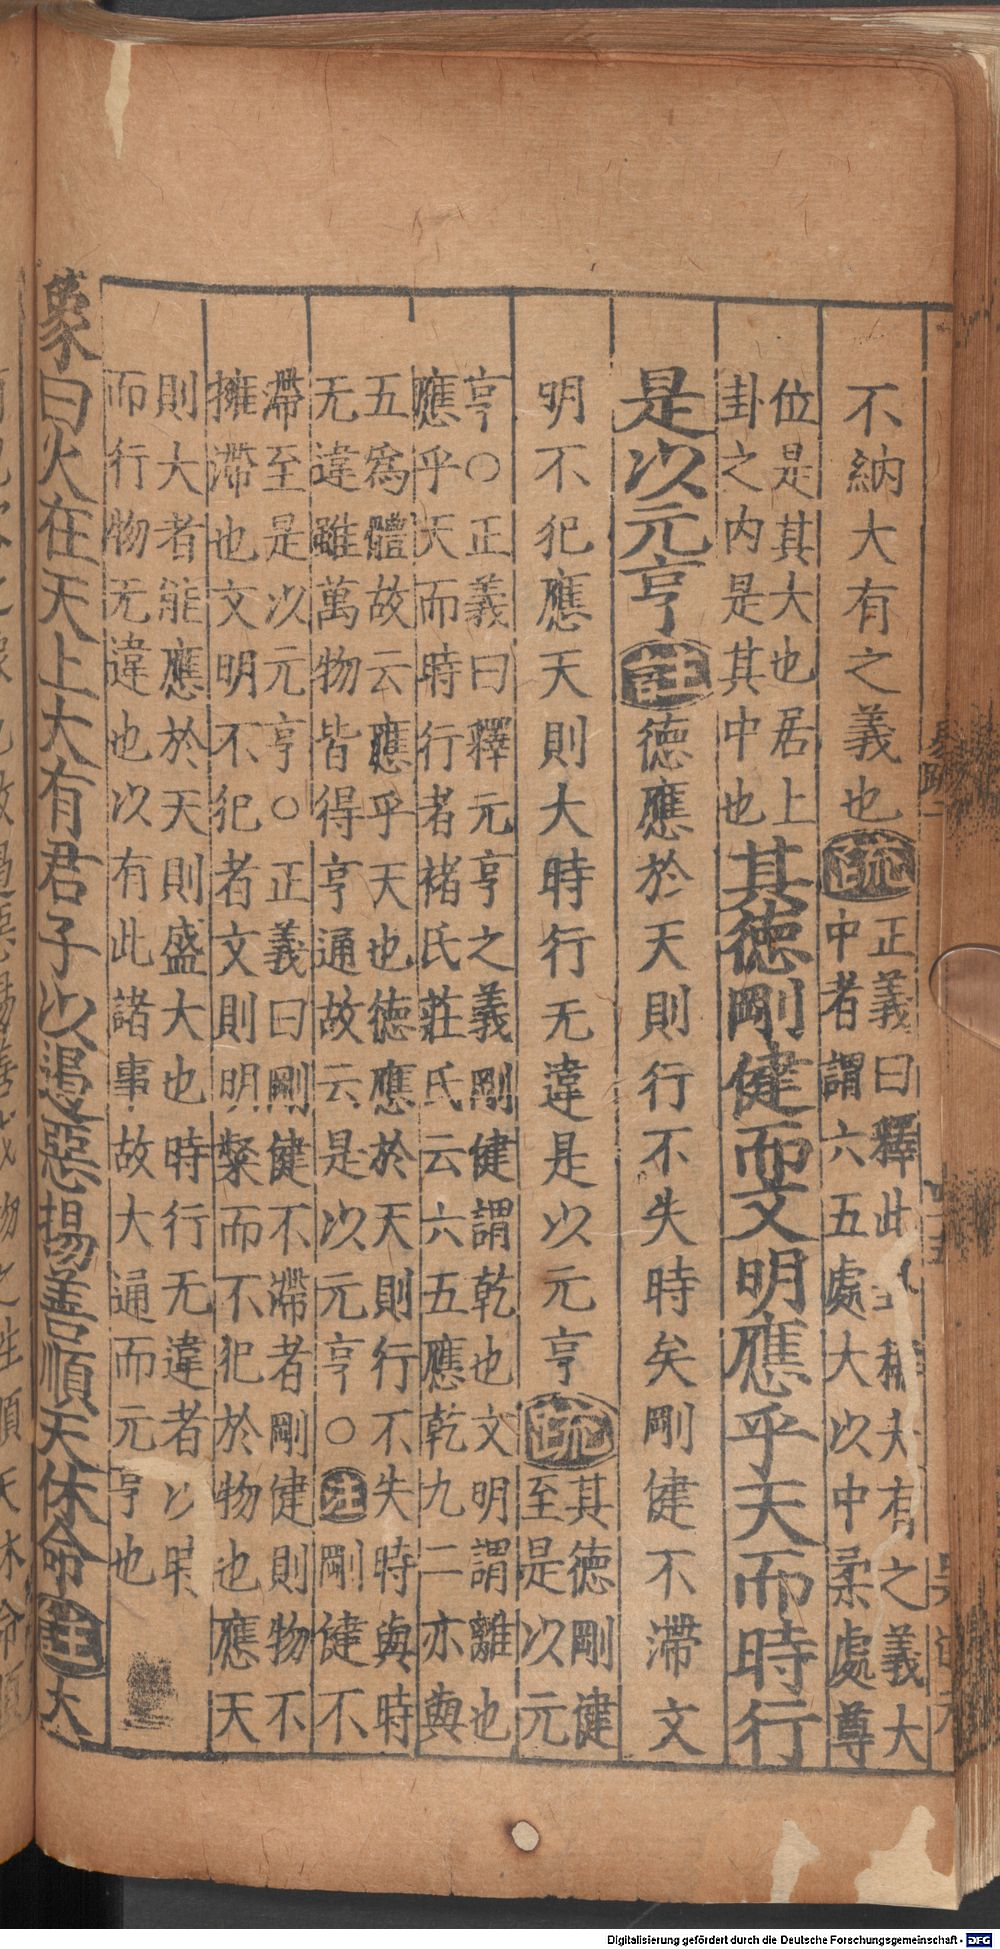 不納大有之義也疏正義曰釋此卦稱大有之義大
中者謂六五處大以中柔處尊
位是其大也居上
卦之内是其中也其德剛健而文明應乎天而時行
是以元亨註德應於天則行不失時矣剛健不滯文
明不犯應天則大時行无違是以元亨疏其德剛健
至是以元
亨○正義曰釋元亨之義剛健謂乾也文明謂離也
應乎天而時行者褚氏莊氏云六五應乾九二亦與
五爲體故云應乎天也德應於天則行不失時與時
无違雖萬物皆得亨通故云是以元亨○注剛健不
滯至是以元亨○正義曰剛健不滯者剛健則物不
擁滯也文明不犯者文則明粲而不犯於物也應天
則大者能應於天則盛大也時行无違者以時
而行物无違也以有此諸事故大通而元亨也
象曰火在天上大有君子以遏惡揚善順天休命註大
Digitalisierung gefördert durch die Deutsche Forschungsgemeinschaft - DFG